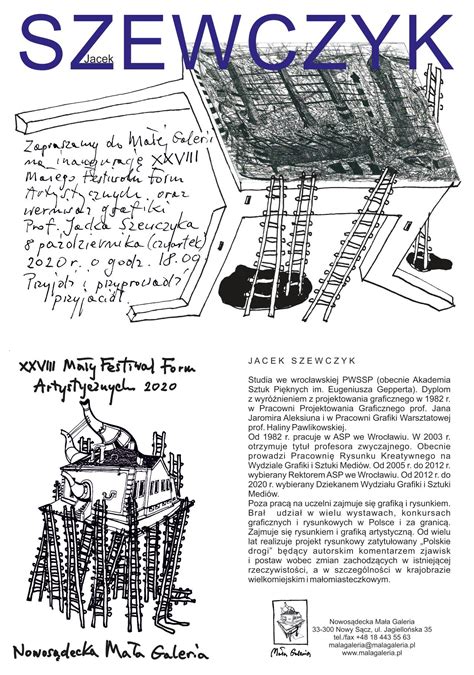 SZEWCZYK
Jacek
Zapraszamy do Małej Galerii
na inaugurację XXVIII
Małego Festiwalu Form
Artystycznych oraz
wernisaż grafiki
Prof. Jacka Szewczyka
8 października (czwartek)
2020 r. o godz. 18.00
Przyjdź i przyprowadź
przyjaciół.
XXVIII Mały Festiwal Form
Artystycznych 2020
Nowosądecka Mała Galeria
JACEK SZEWCZYK
Studia we wrocławskiej PWSSP (obecnie Akademia
Sztuk Pięknych im. Eugeniusza Gepperta). Dyplom
z wyróżnieniem z projektowania graficznego w 1982 r.
w Pracowni Projektowania Graficznego prof. Jana
Jaromira Aleksiuna i w Pracowni Grafiki Warsztatowej
prof. Haliny Pawlikowskiej.
Od 1982 r. pracuje w ASP we Wrocławiu. W 2003 r.
otrzymuje tytuł profesora zwyczajnego. Obecnie
prowadzi Pracownię Rysunku Kreatywnego na
Wydziale Grafiki i Sztuki Mediów. Od 2005 r. do 2012 r.
wybierany Rektorem ASP we Wrocławiu. Od 2012 r. do
2020 r. wybierany Dziekanem Wydziału Grafiki i Sztuki
Mediów.
Poza pracą na uczelni zajmuje się grafiką i rysunkiem.
Brał udział w wielu wystawach, konkursach
graficznych i rysunkowych w Polsce i za granicą.
Zajmuje się rysunkiem i grafiką artystyczną. Od wielu
lat realizuje projekt rysunkowy zatytułowany „Polskie
drogi” będący autorskim komentarzem zjawisk
i postaw wobec zmian zachodzących w istniejącej
rzeczywistości, a w szczególności w krajobrazie
wielkomiejskim i małomiasteczkowym.
Nowosądecka Mała Galeria
33-300 Nowy Sącz, ul. Jagiellońska 35
tel./fax +48 18 443 55 63
malagaleria@malagaleria.pl
www.malagaleria.pl
Mała Galeria